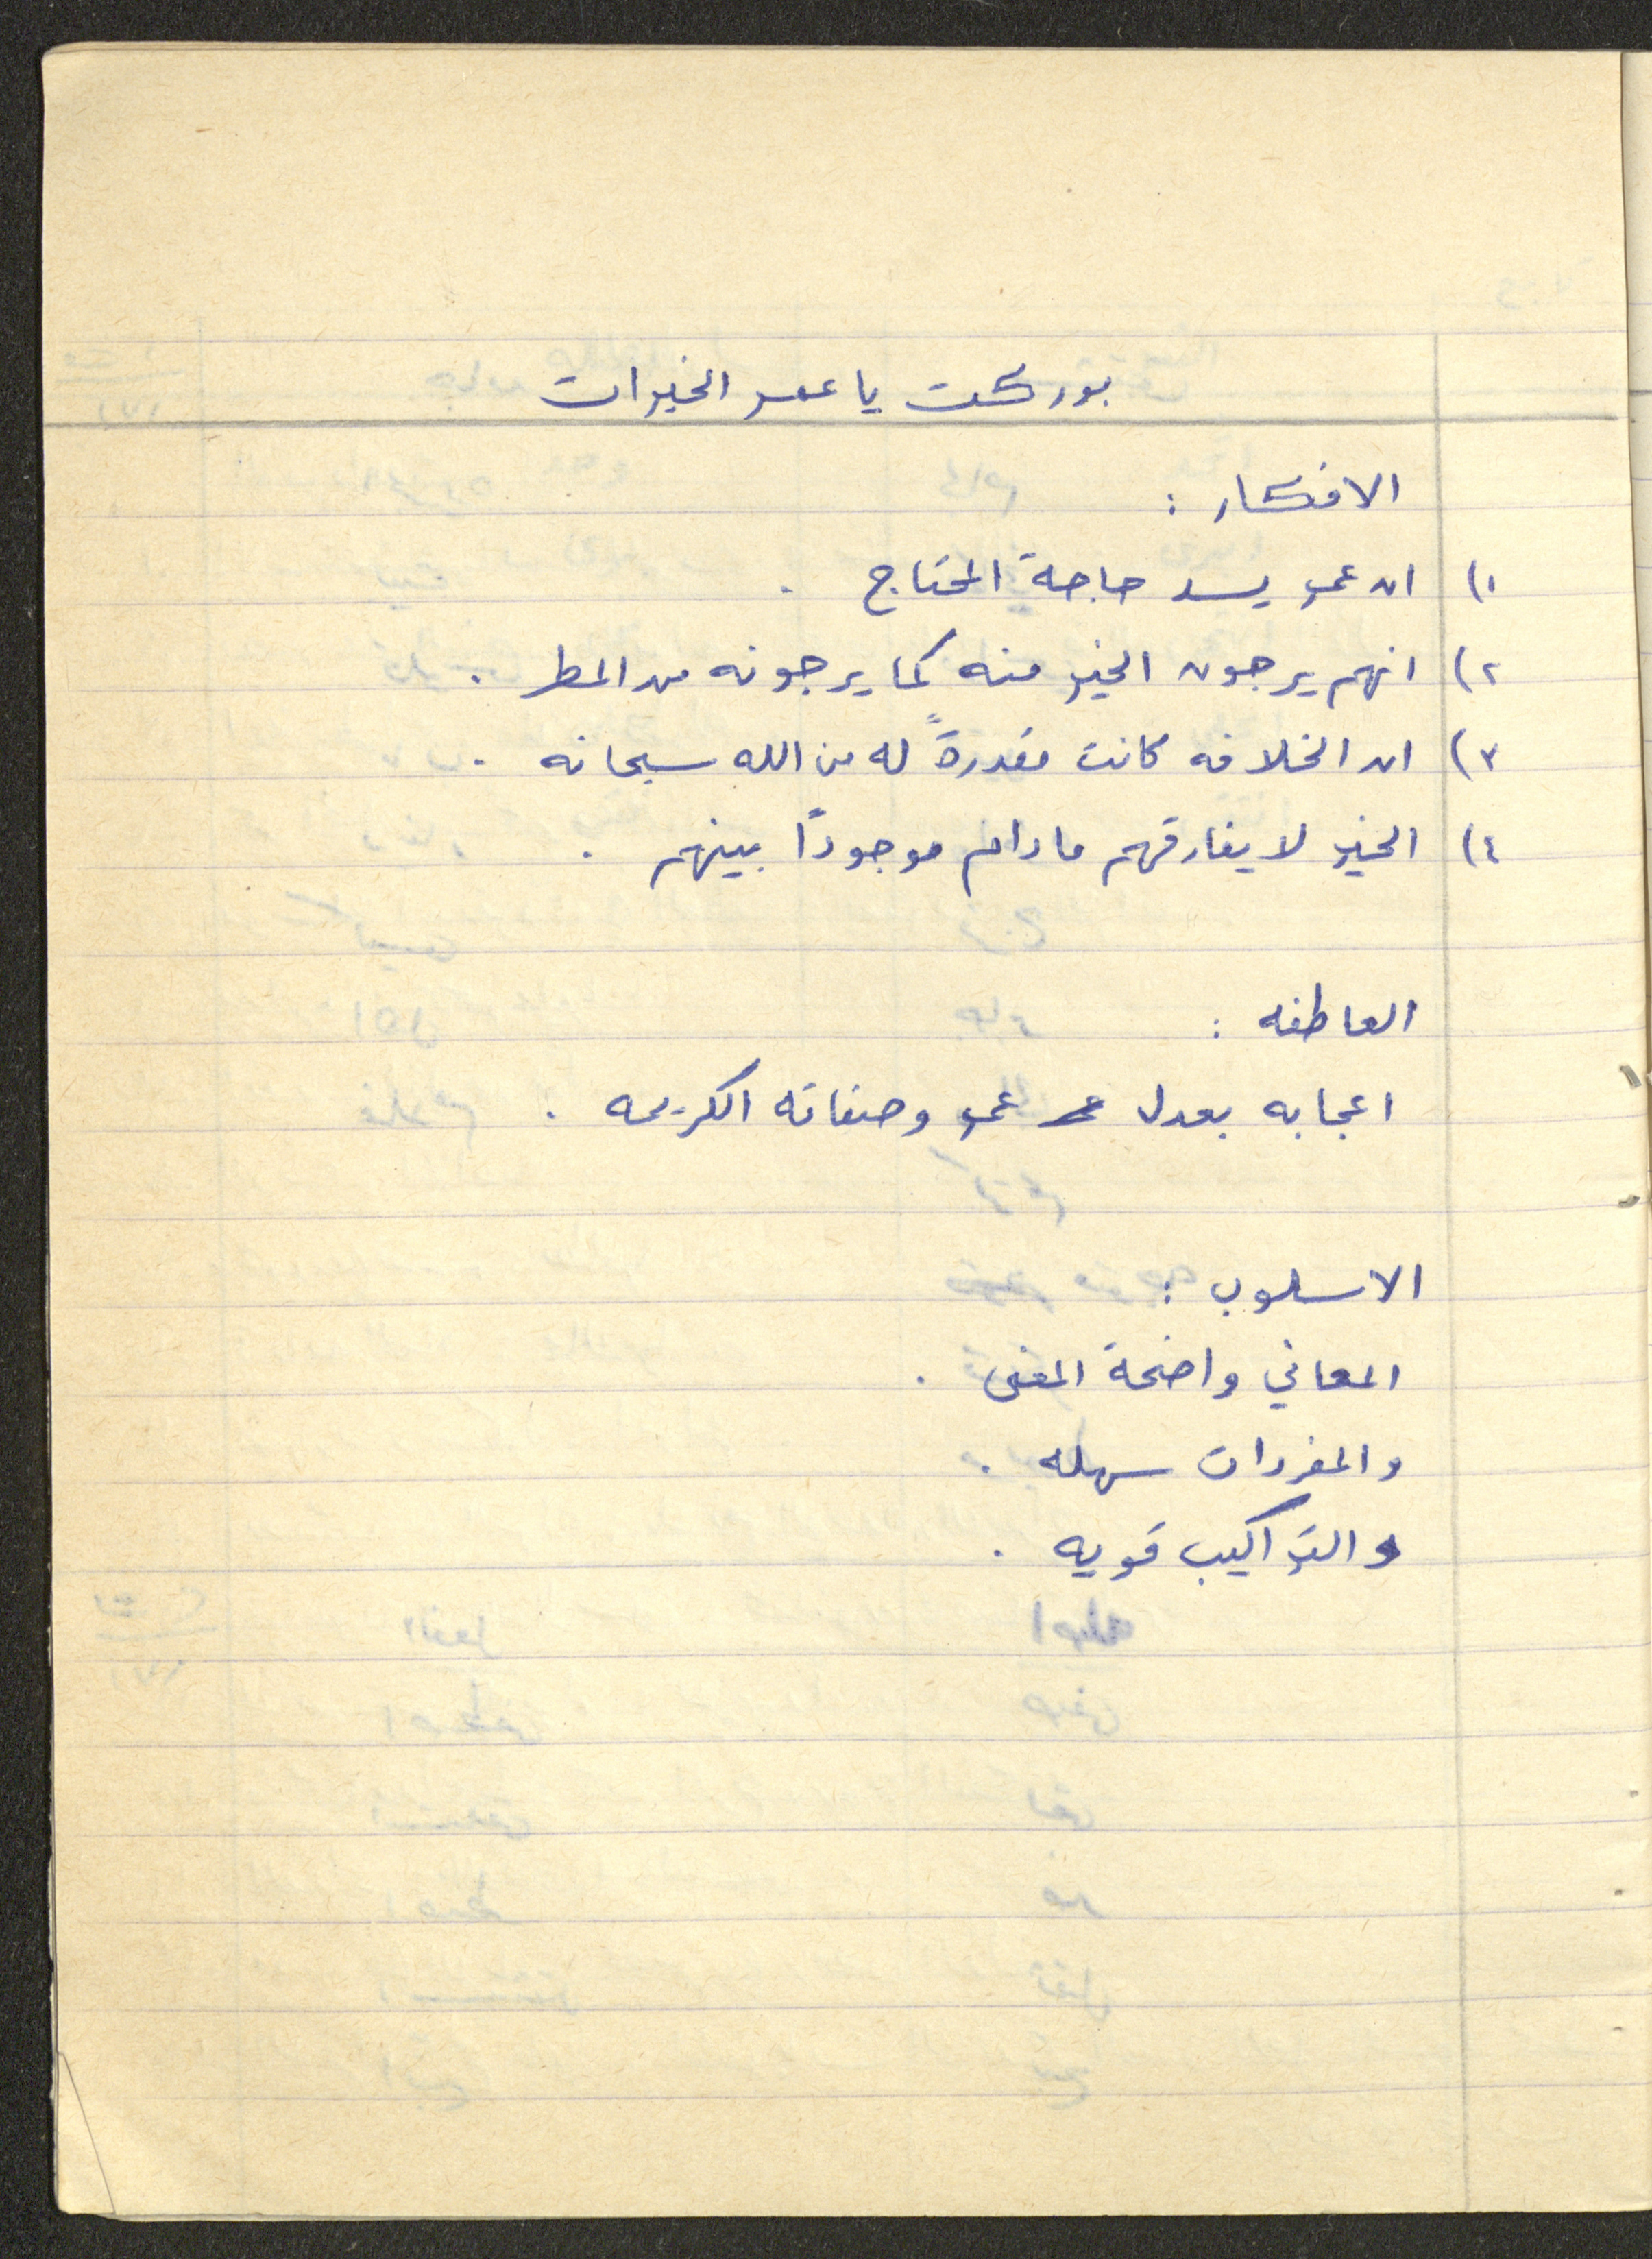 بوركت يا عمر الخيرات
الافكار :
١) ان عمر يسد حاجة المحتاج .
٢) انهم يرجون الخير منه كما يرجونه من المطر .
٣) ان الخلافه كانت مقدرةً له من الله سبحانه .
٤) الخير لا يفارقهم مادام موجودًا بينهم .
العاطفه :
اعجابه بعدل عمر وصفاته الكريمه .
الاسلوب :
المعاني واضحة المغنى .
والمفردات سهله .
والتراكيب قويه .